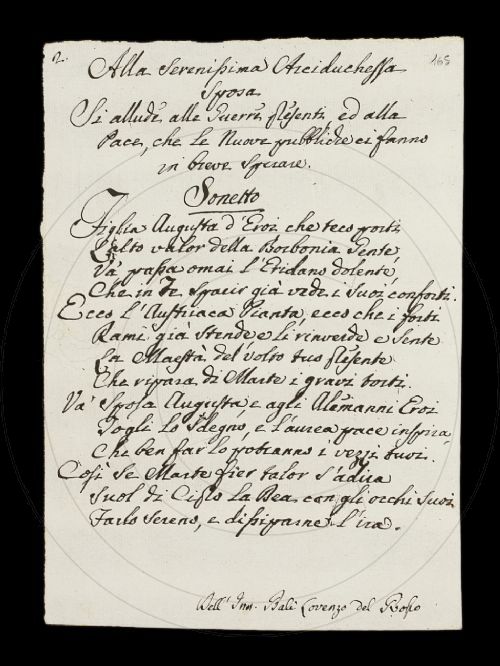 2. 165
Alla Serenissima Arciduchessa
Sposa
Si allude alle Guerre presenti, ed alla
Pace, che le Nuove pubbliche ci fanno
in breve sperare.
Sonetto
Figlia Augusta d'Eroi che teco porti
L'alto valor della Borbonia Gente,
Va' passa omai l'Eridano dolente,
Che in Te sparir già vede i suoi conforti.
Ecco l'Austriaca Pianta, ecco che i forti
Rami già stende e li rinverde e sente
La Maestà del volto tuo presente
Che ripara di Marte i gravi torti.
Va' Sposa Augusta, e agli Alemanni Eroi
Togli lo sdegno, e l'aurea pace inspira,
Che ben far lo potranno i vezzi tuoi.
Così se Marte fier talor s'adira
Suol di Cipro la Dea con gli occhi suoi
Farlo sereno, e dissiparne l'ira.
Dell' Balì Lorenzo del Rosso